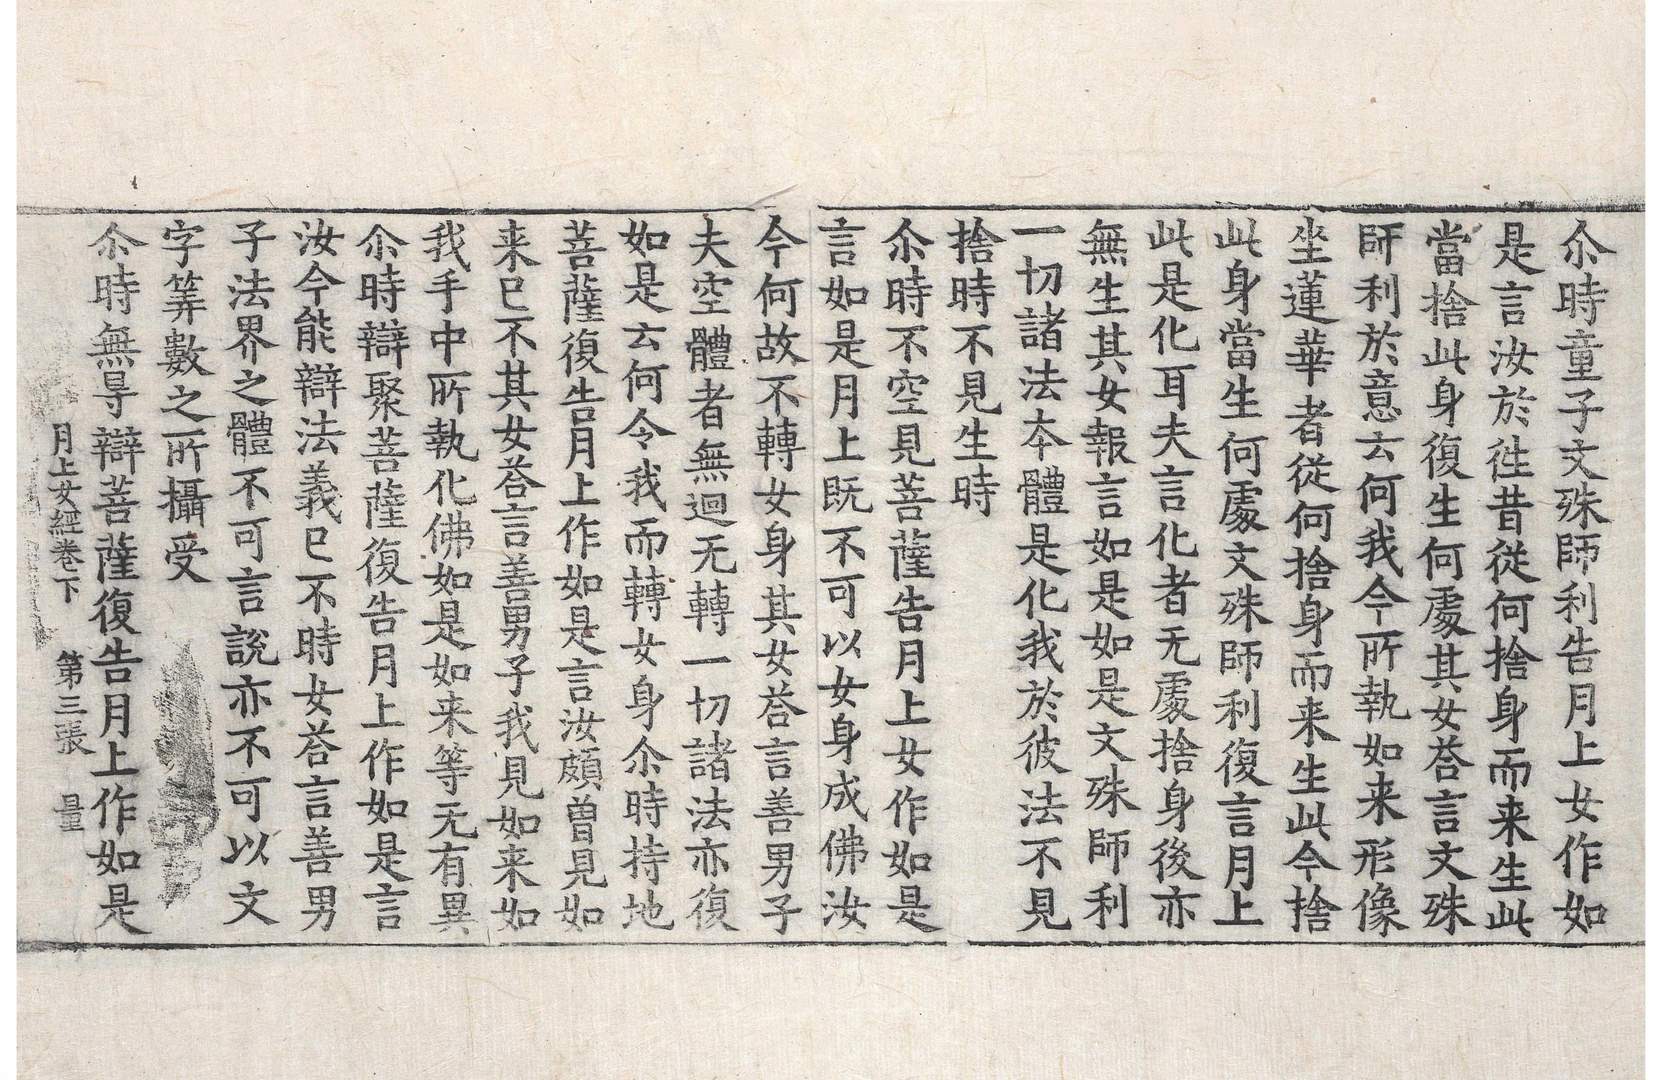 尒時童子文殊師利告月上女作如
是言汝於徃昔從何捨身而来生此
當捨此身復生何處其女荅言文殊
師利於意云何我今所執如来形像
坐蓮華者從何捨身而来生此今捨
此身當生何處文殊師利復言月上
此是化耳夫言化者无處捨身後亦
無生其女報言如是如是文殊師利
一切諸法夲體是化我於彼法不見
捨時不見生時
尒時不空見菩薩告月上女作如是
言如是月上既不可以女身成佛汝
今何故不轉女身其女荅言善男子
夫空體者無迴无轉一切諸法亦復
如是云何令我而轉女身尒時持地
菩薩復告月上作如是言汝頗曽見如
来已不其女荅言善男子我見如来如
我手中所執化佛如是如来等无有異
尒時辯聚菩薩復告月上作如是言
汝今能辯法義已不時女荅言善男
子法界之體不可言說亦不可以文
字筭數之所攝受
尒時無㝵辯菩薩復告月上作如是
月上女經卷下　第三張　量